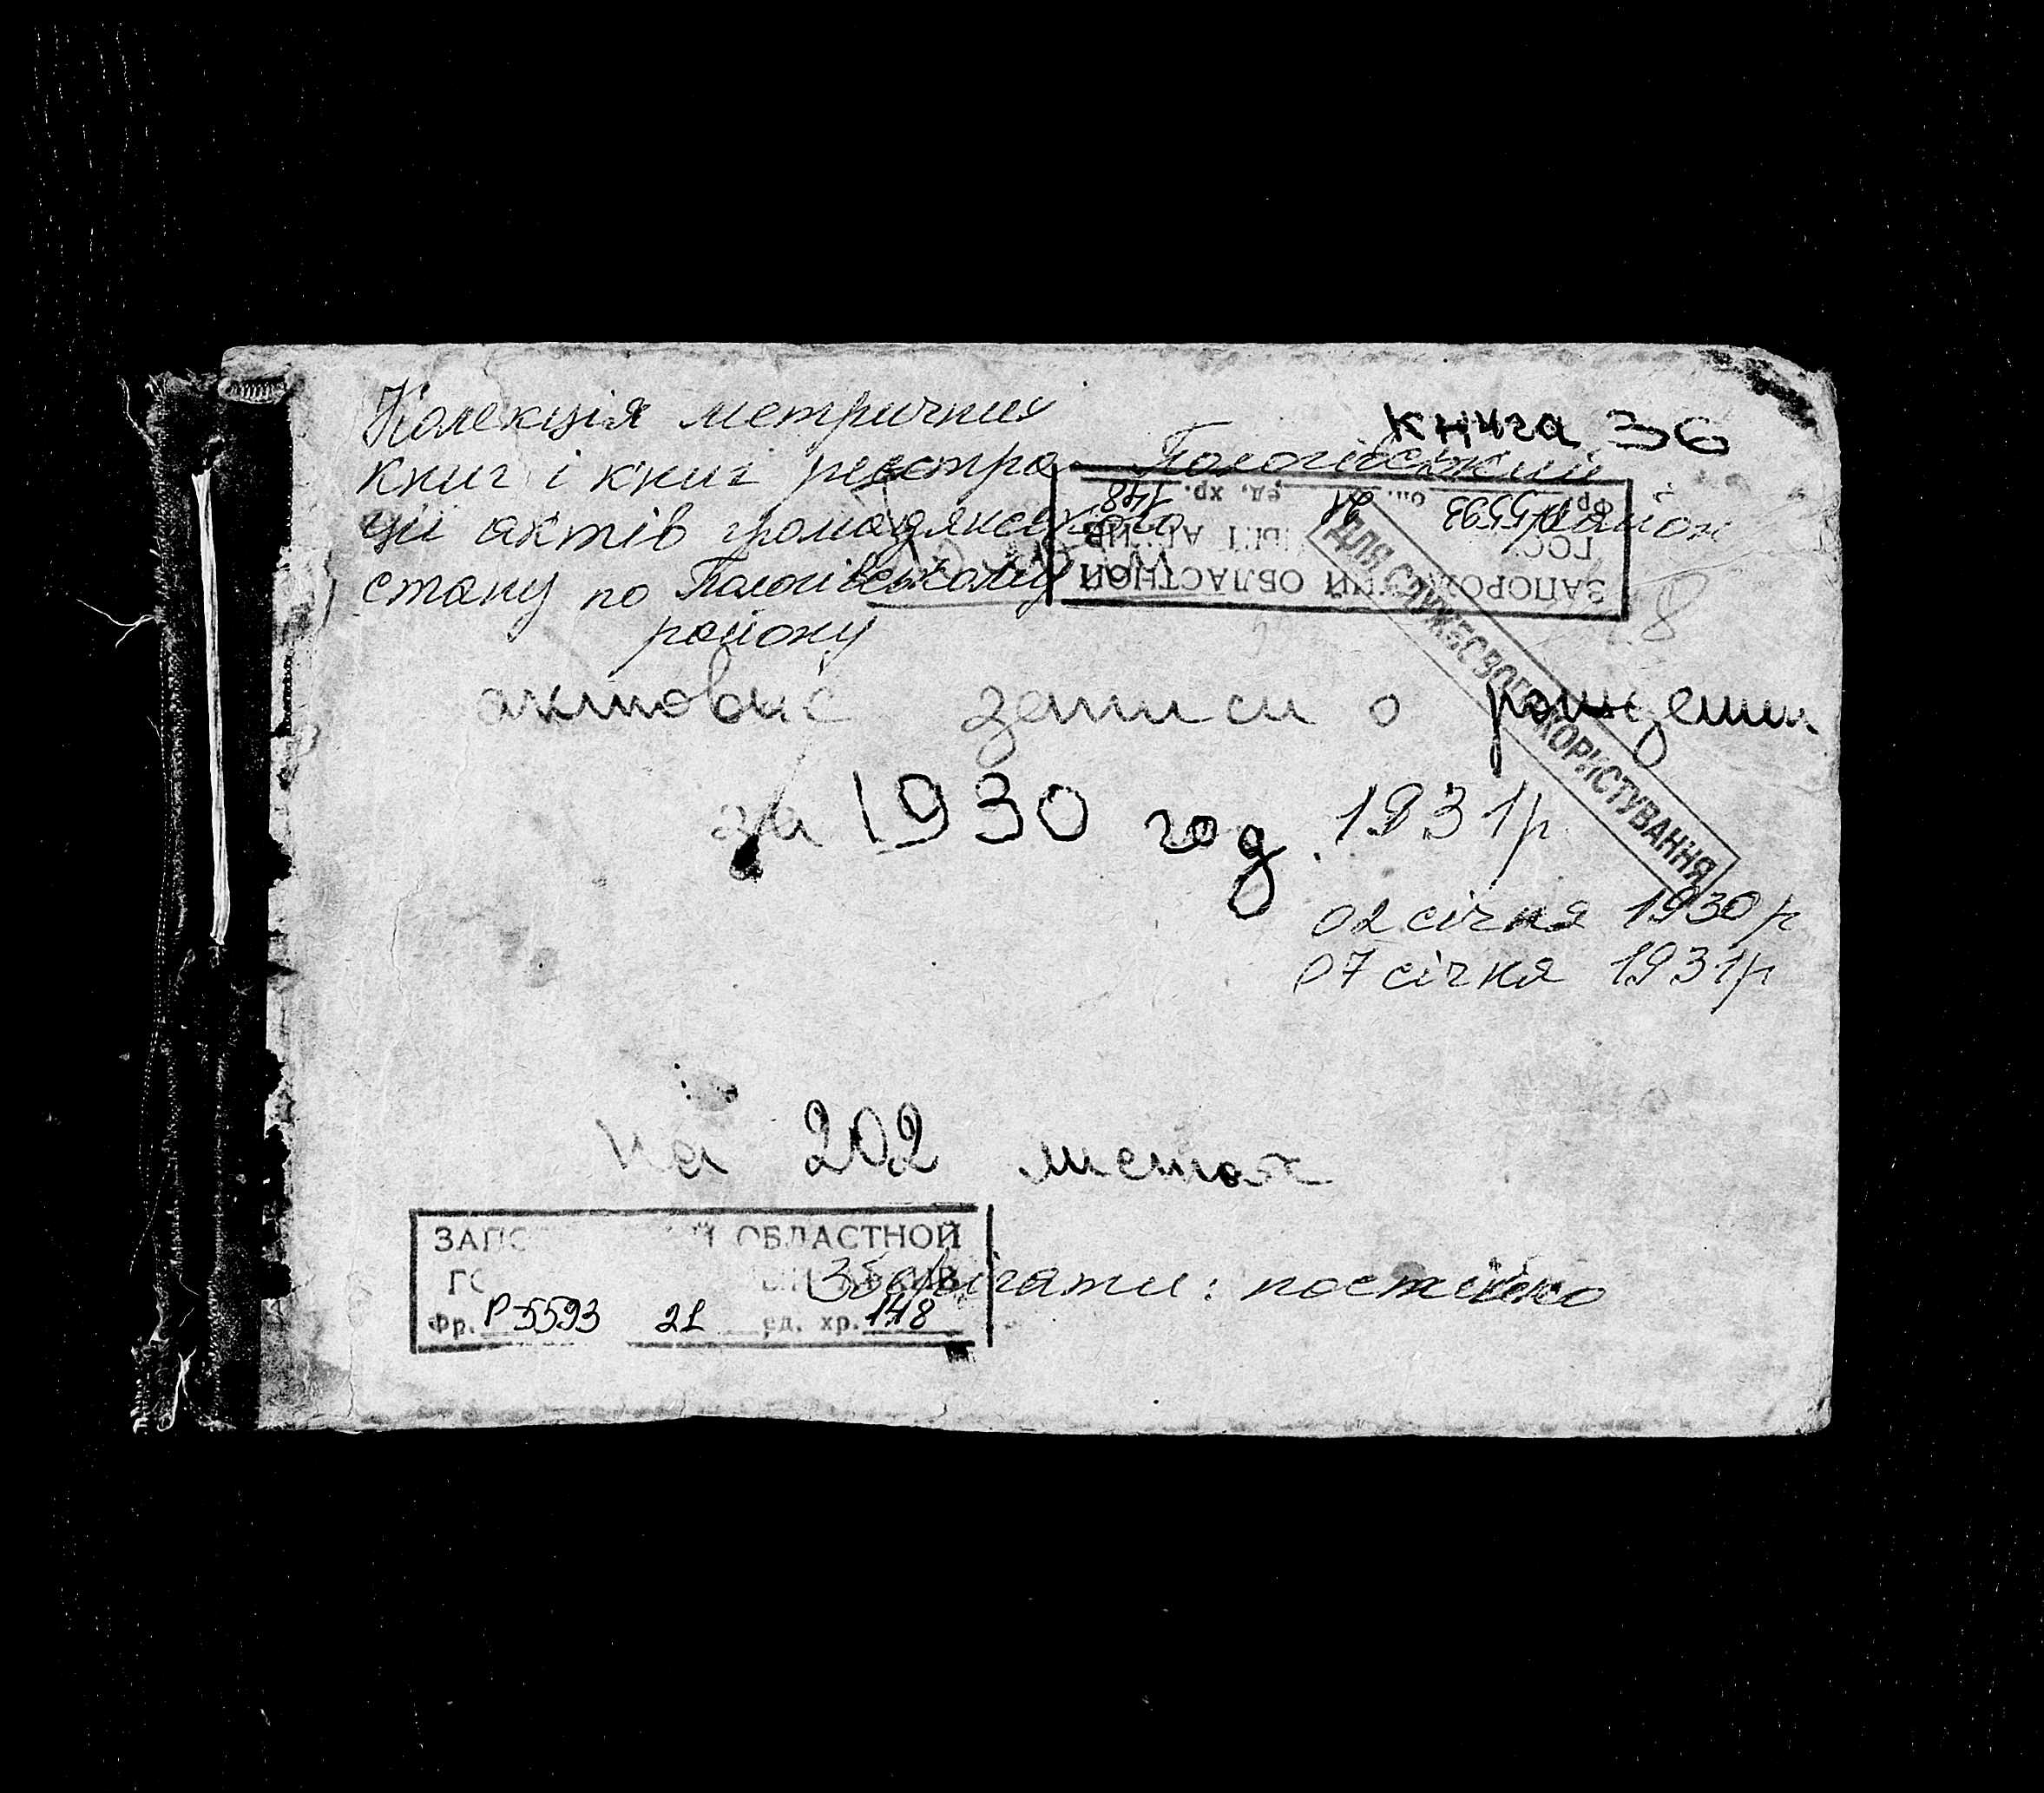 Колекція метричних
книг і книг реєстра-
ції актів громадянського
стану по Пологівському
району
книга 36
Пологівський
район
ЗАПОРОЖСКИЙ ОБЛАСТНОЙ
ГОС АРХИВ
Фр. Р-5593 оп. 21 ед. хр. 148
ДЛЯ СЛУЖБОВОГО КОРИСТУВАННЯ
8
актовые записи о рождении
за 1930 год. 1931р
02 січня 1930р
07 січня 1931р
на 202 листах
ЗАПО Й ОБЛАСТНОЙ
ГО
Зберігати: постійно
Фр. Р-5593 21 ед. хр. 148